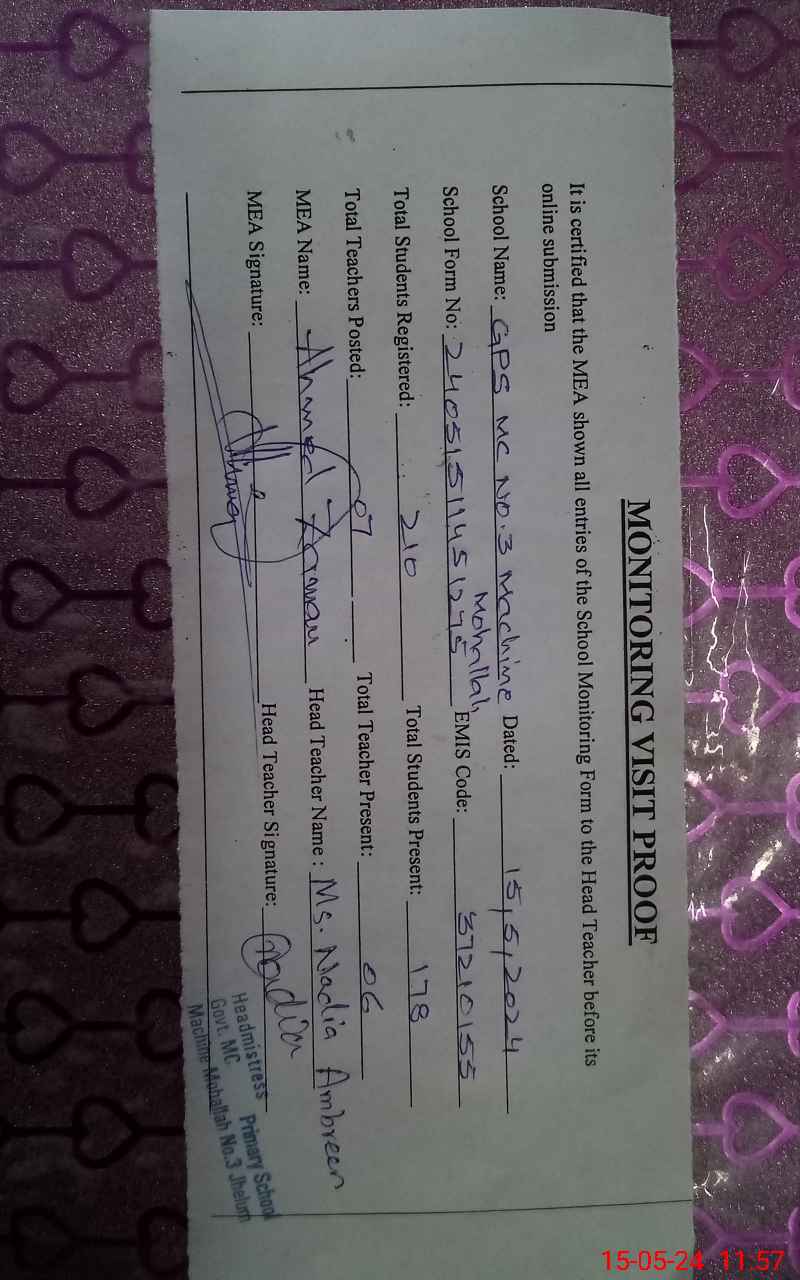 MONITORING VISIT PROOF
It is certified that the MEA shown all entries of the School Monitoring Form to the Head Teacher before its
online submission
School Name: GPS MC NO.3 Machine Mohallah Dated: 15,5,2024
School Form No: 24051511451275 EMIS Code: 37210155
Total Students Registered: 210 Total Students Present: 178
Total Teachers Posted: 07 Total Teacher Present: 06
MEA Name: Ahmed Zaman Head Teacher Name : Ms. Nadia Ambreen
MEA Signature: Head Teacher Signature: Nadia
Headmistress
Govt. MC Primary School
Machine Mohallah No.3 Jhelum
15-05-24 11:57